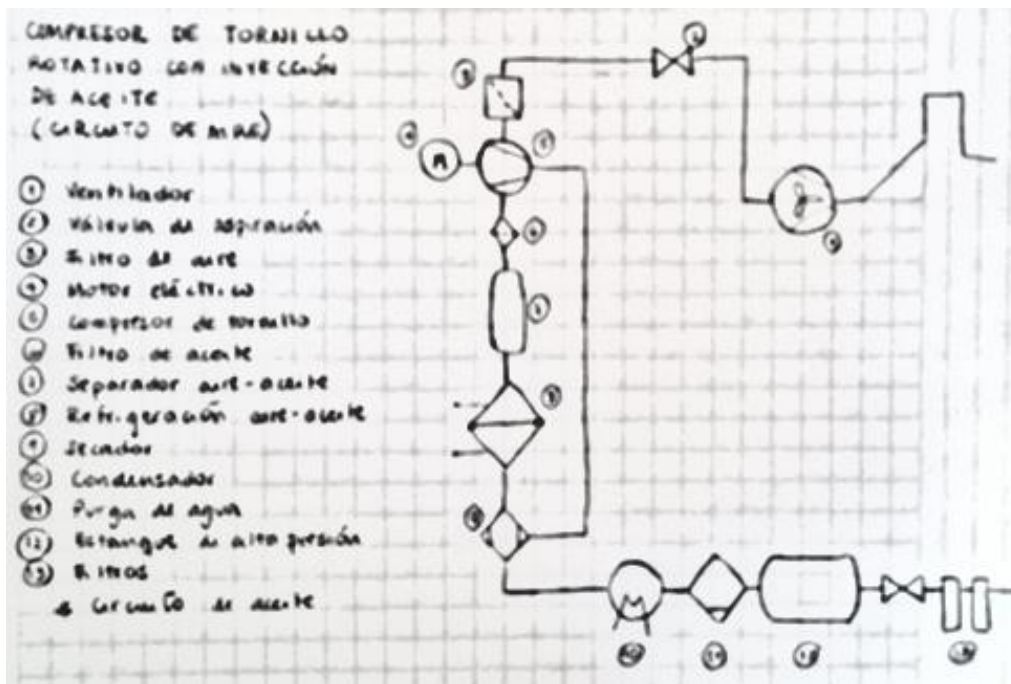 COMPRESOR DE TORNILLO
ROTATIVO CON INYECCIÓN
DE ACEITE
(CIRCUITO DE AIRE)
① Ventilador
② Válvula de aspiración
③ Filtro de aire
④ Motor eléctrico
⑤ Compresor de tornillo
⑥ Filtro de aceite
⑦ Separador aire-aceite
⑧ Refrigeración aire-aceite
⑨ Secador
⑩ Condensador
⑪ Purga de agua
⑫ Estanque de alta presión
⑬ Filtros
circuito de aceite
M